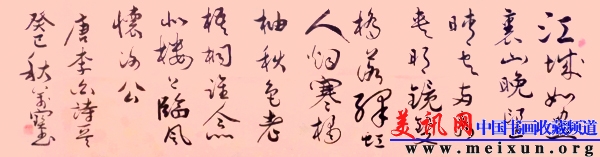 江城如畫
裏山晚望
晴空兩水
夾明鏡雙
橋落彩虹
人烟寒橘
柚秋色老
梧桐誰念
北樓上臨風
懷謝公
唐李白詩
癸巳秋
美讯网 中国书画收藏频道
www.meixun.org